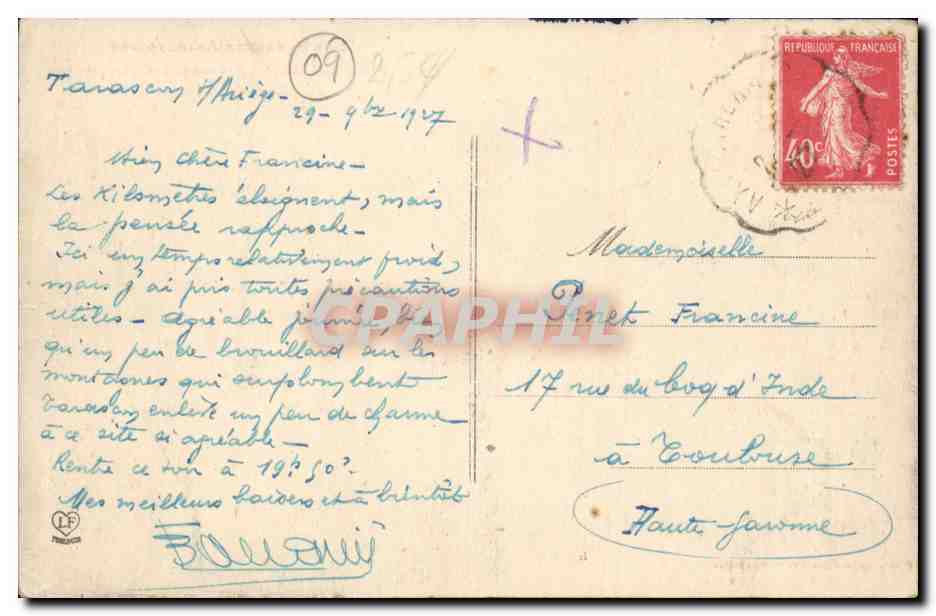 09
Tarascon s/Ariège -
29 - 9bre 1927
Bien chère Francine -
Les Kilomètres éloignent, mais
la pensée rapproche -
Ici un temps relativement froid,
mais j'ai pris toutes précautions
utiles - agréable journée, bien
qu'un peu de brouillard sur les
montagnes qui surplombent
Tarascon enlève un peu de charme
à ce site si agréable -
Rentre ce soir à 19h 50'.
Mes meilleurs baisers et à bientôt
LF
TOULOUSE
REPUBLIQUE FRANÇAISE
40c
POSTES
Mademoiselle
Pinet Francine
17 rue du Coq d'Inde
à Toulouse
Haute-Garonne
CPAPHIL